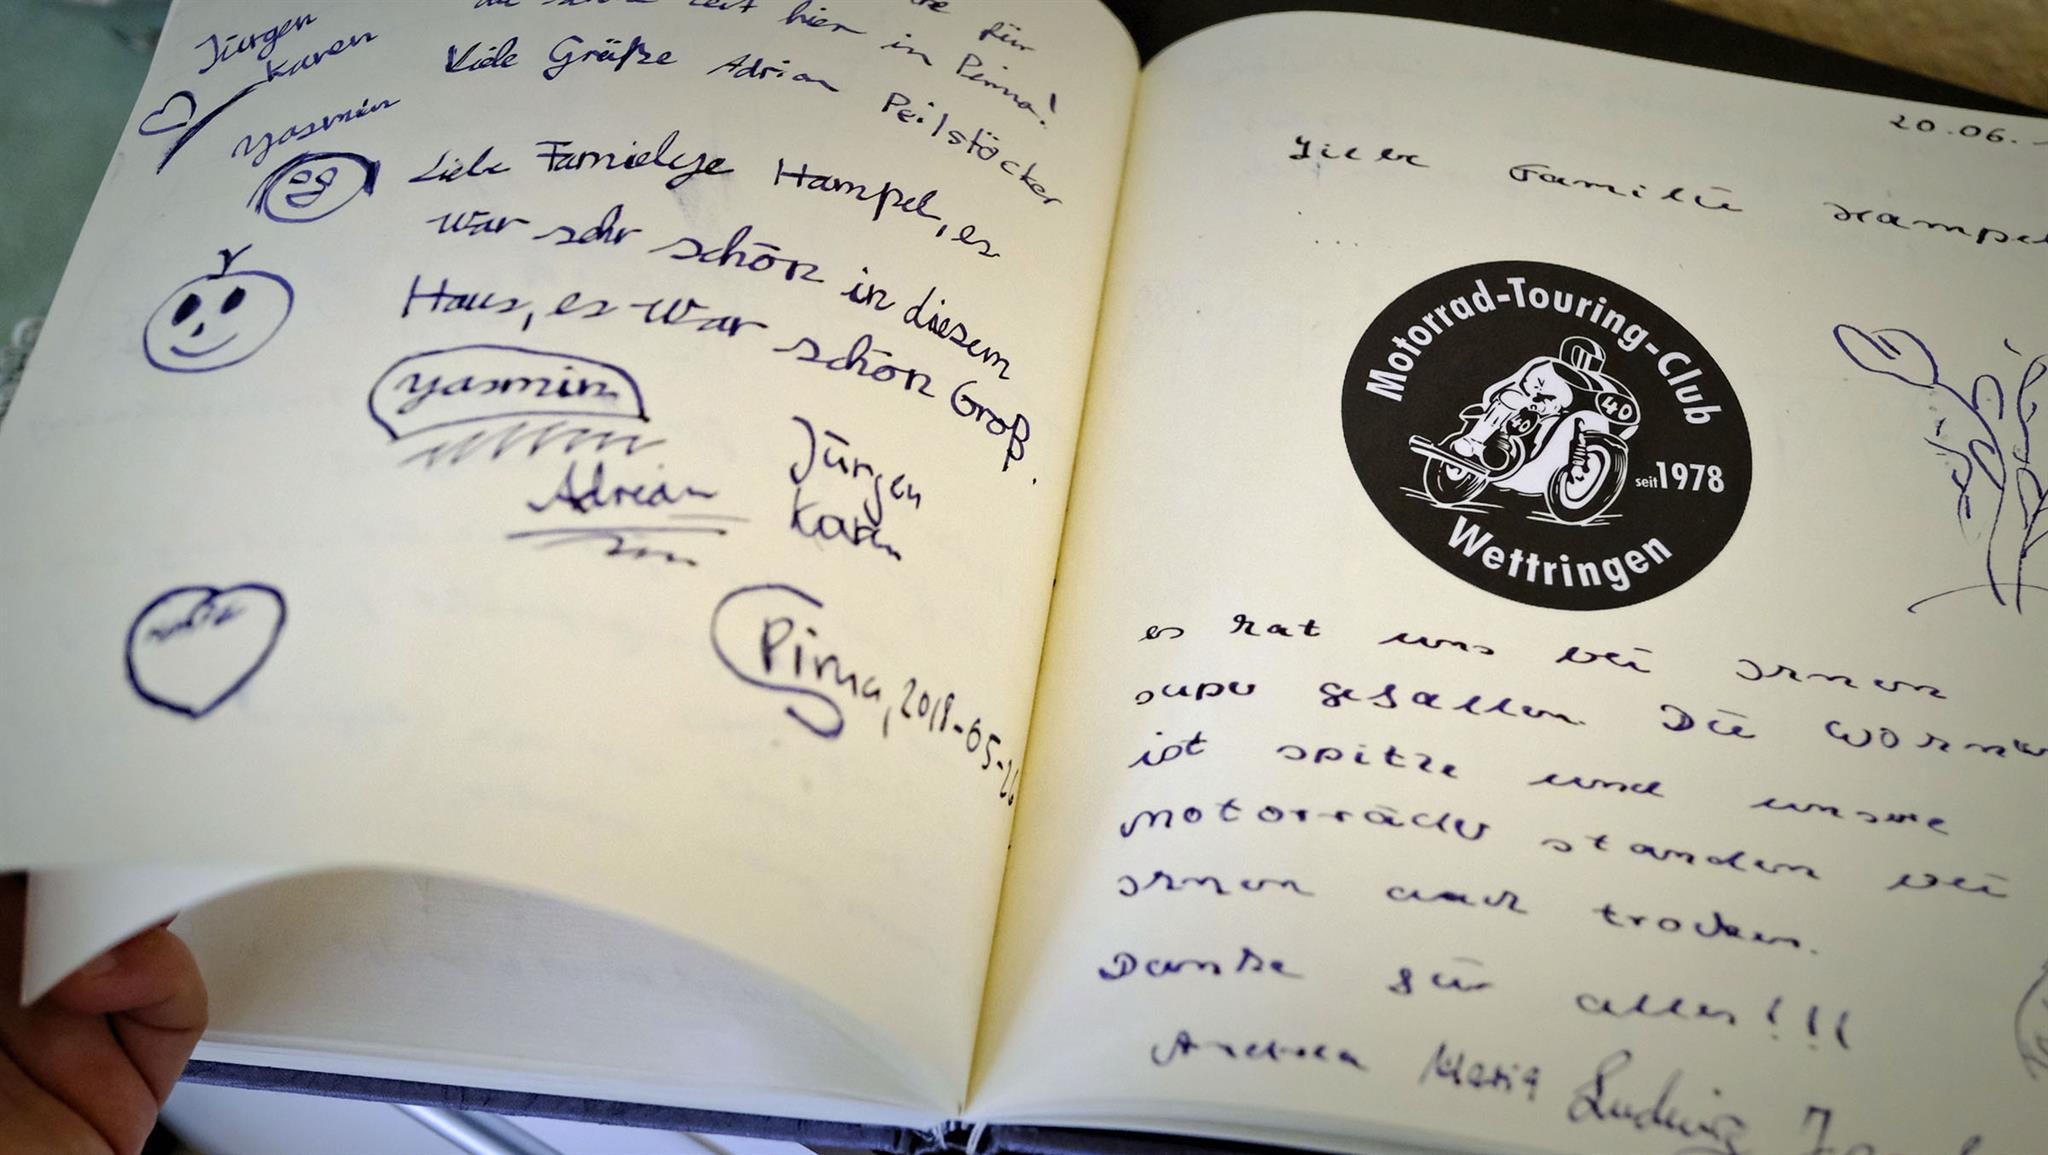 Jürgen
Karen
Yasmin
die schöne Zeit hier in Pirna!
für
Viele Grüße Adrian Peilstöcker
Liebe Familelye Hampel, es
war sehr schön in diesem
Haus, es war schön Groß.
Yasmin
Adrian
Jürgen
Karen
Pirna, 2018-05-26
20.06.
Liebe Familie Hampel
Motorrad-Touring-Club
40
40
seit 1978
Wettringen
es hat uns bei Ihnen
super gefallen. Die Wohn
ist spitze und unsere
Motorräder standen bei
Ihnen auch trocken.
Danke für alles!!!
Andrea Maria Ludwig